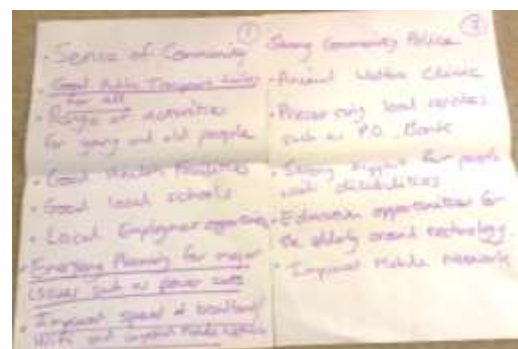 ①
· Sense of Community
· Good Public Transport
for all
· Range of activities
for young and old people
· Good Health Facilities
· Good local schools
· Local Employment opportunities
· Emergency Planning for major
issues such as power cuts
· Improved speed of broadband/
WiFi and
Strong Community Police
· Animal Welfare Clinic
· Preserving local services
such as P.O. Bank
· Strong support for people
with disabilities
· Education opportunities for
the elderly around technology.
· Improved Mobile Network